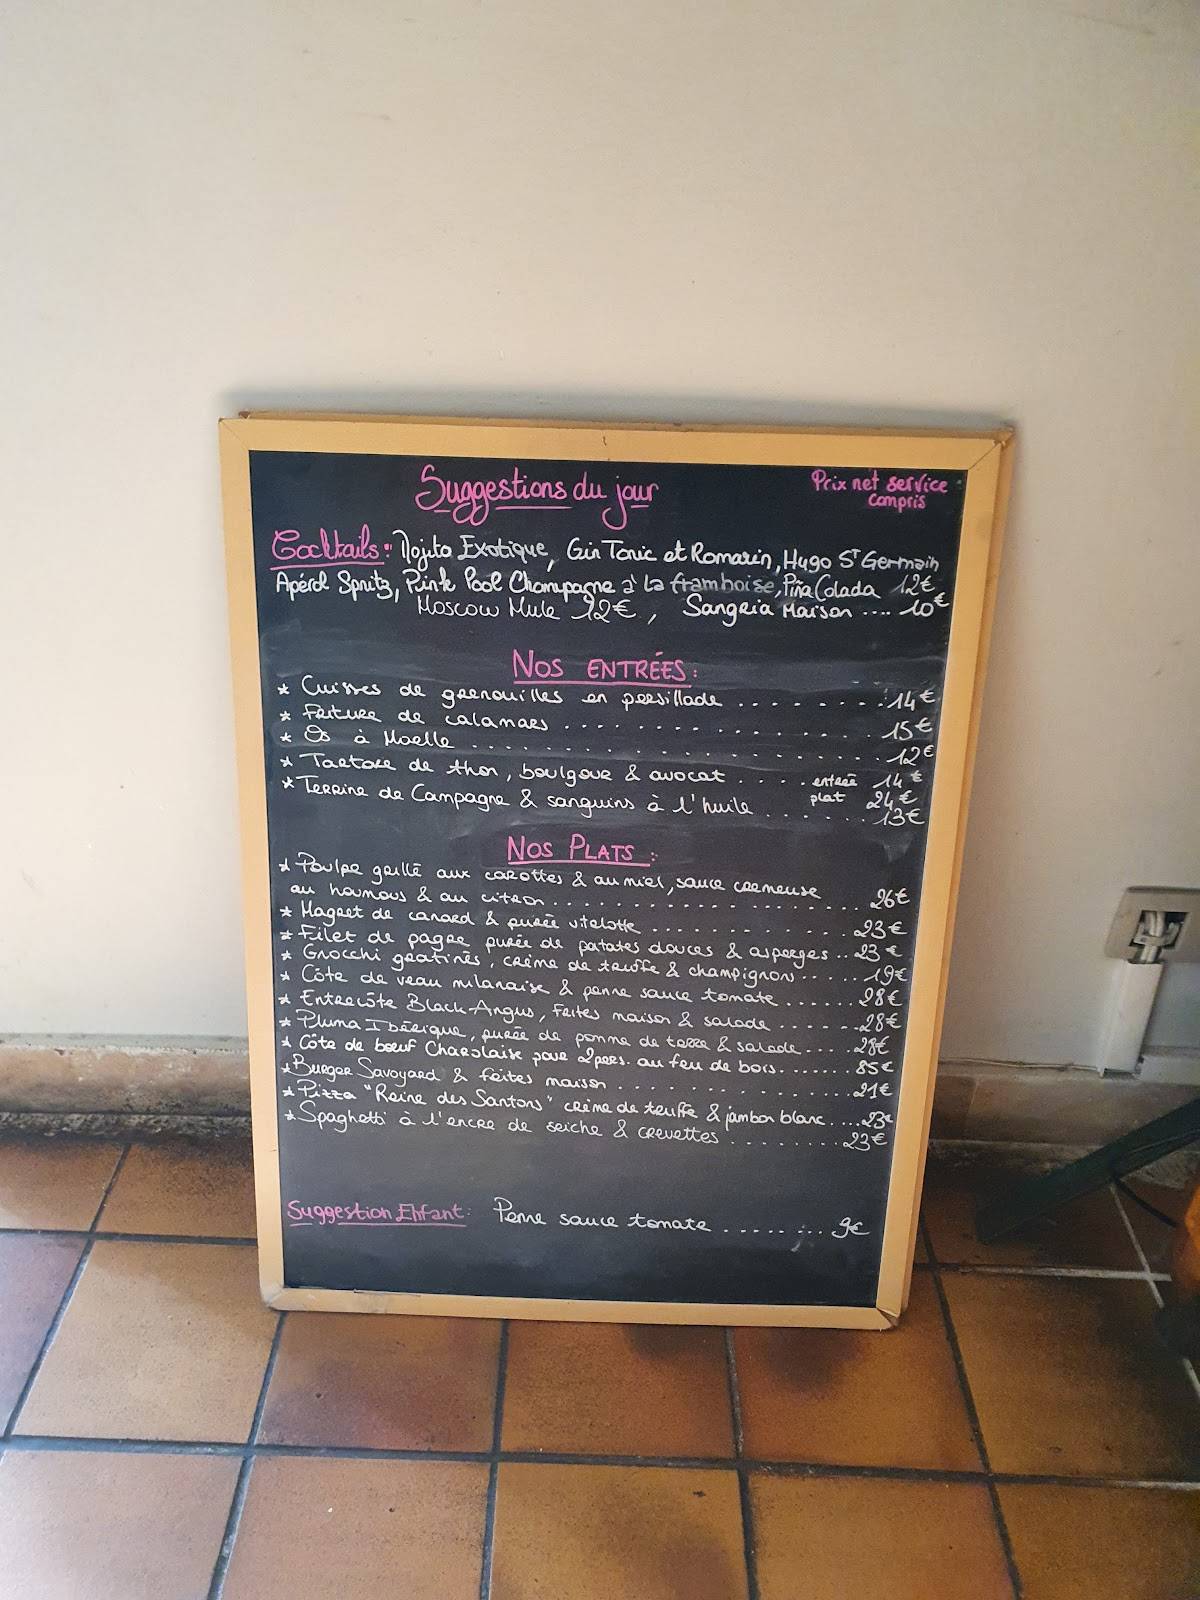 Suggestions du jour
Prix net service
compris
Cocktails: Mojito Exotique, Gin Tonic et Romarin, Hugo ST Germain
Apérol Spritz, Pink Pool Champagne à la framboise, Piña Colada 12€
Moscow Mule 12€, Sangria Maison .... 10€
NOS ENTRÉES:
* Cuisses de grenouilles en persillade ........ 14€
* Friture de calamars .............. 15€
* Os à Moelle .................. 12€
* Tartare de thon, boulgour & avocat .... entrée 14€
plat 24€
* Terrine de Campagne & sanguins à l'huile ....... 13€
NOS PLATS:
* Poulpe grillé aux carottes & au miel, sauce crémeuse
au houmous & au citron .................... 26€
* Magret de canard & purée vitelotte ............ 23€
* Filet de pagre purée de patates douces & asperges .. 23€
* Gnocchi gratinés, crème de truffe & champignons ..... 19€
* Côte de veau milanaise & penne sauce tomate ....... 28€
* Entrecôte Black-Angus, frites maison & salade ...... 28€
* Pluma Ibérique, purée de pomme de terre & salade .... 28€
* Côte de bœuf Charolaise pour 2pers. au feu de bois ....... 85€
* Burger Savoyard & frites maison .......... 21€
* Pizza "Reine des Santons" crème de truffe & jambon blanc .... 23€
* Spaghetti à l'encre de seiche & crevettes ......... 23€
Suggestion Enfant: Penne sauce tomate ......... 9€